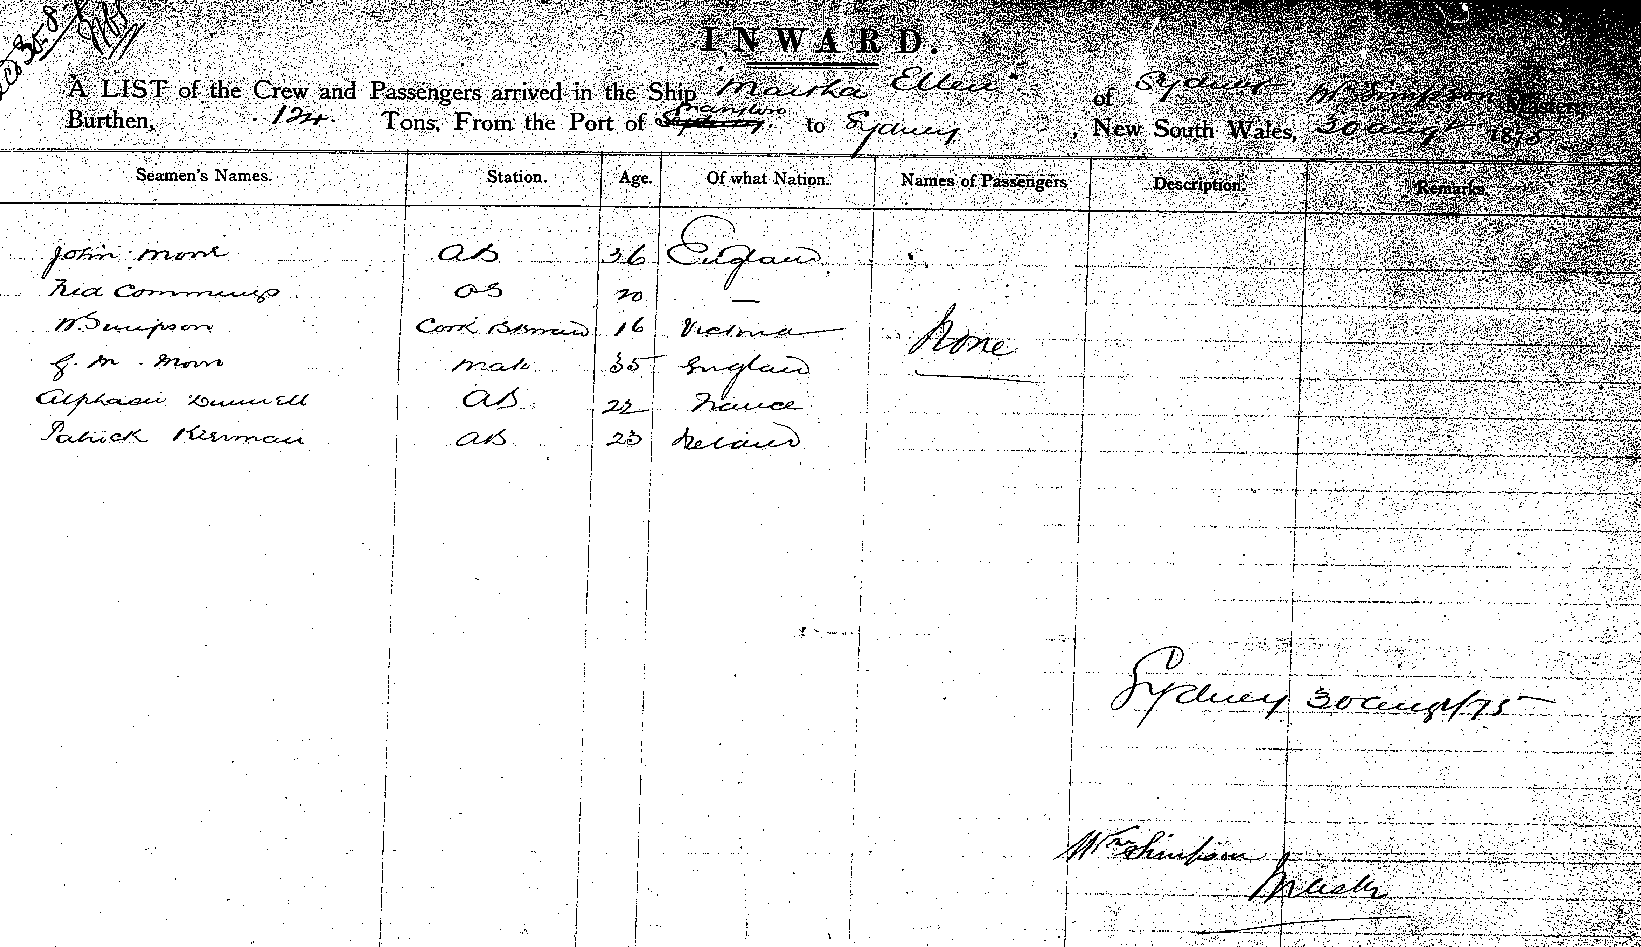 INWARD.
A LIST of the Crew and Passengers arrived in the Ship "Martha Ellen" of Sydney Wm Simpson Master,
Burthen, 124 Tons, From the Port of Sydney to Sydney, New South Wales, 30 augt 1875
Seamen's Names. Station. Age. Of what Nation. Names of Passengers Description. Remarks.
John AB 26 England
Fred Commings OS 20 —
W. Simpson Cook 16 Victoria
G. M. Mate 35 England None
AB 22 France
Patrick Kiernan AB 23 Ireland
Sydney 30 augst/75
Wm Simpson
Master